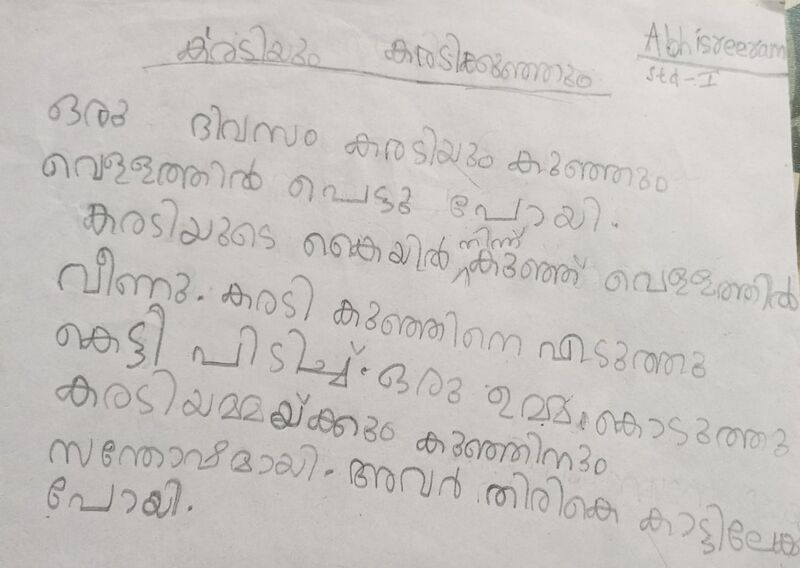 കരടിയും കരടിക്കുഞ്ഞും
Abhisreeram
Std-I
ഒരു ദിവസം കരടിയും കുഞ്ഞും
വെള്ളത്തിൽ പെട്ടു പോയി.
കരടിയുടെ കൈയിൽ നിന്ന് കുഞ്ഞ് വെള്ളത്തിൽ
വീണു. കരടി കുഞ്ഞിനെ എടുത്തു
കെട്ടി പിടിച്ച്. ഒരു ഉമ്മ കൊടുത്തു
കരടിയമ്മയ്ക്കും കുഞ്ഞിനും
സന്തോഷമായി. അവർ തിരികെ കാട്ടിലേക്ക്
പോയി.